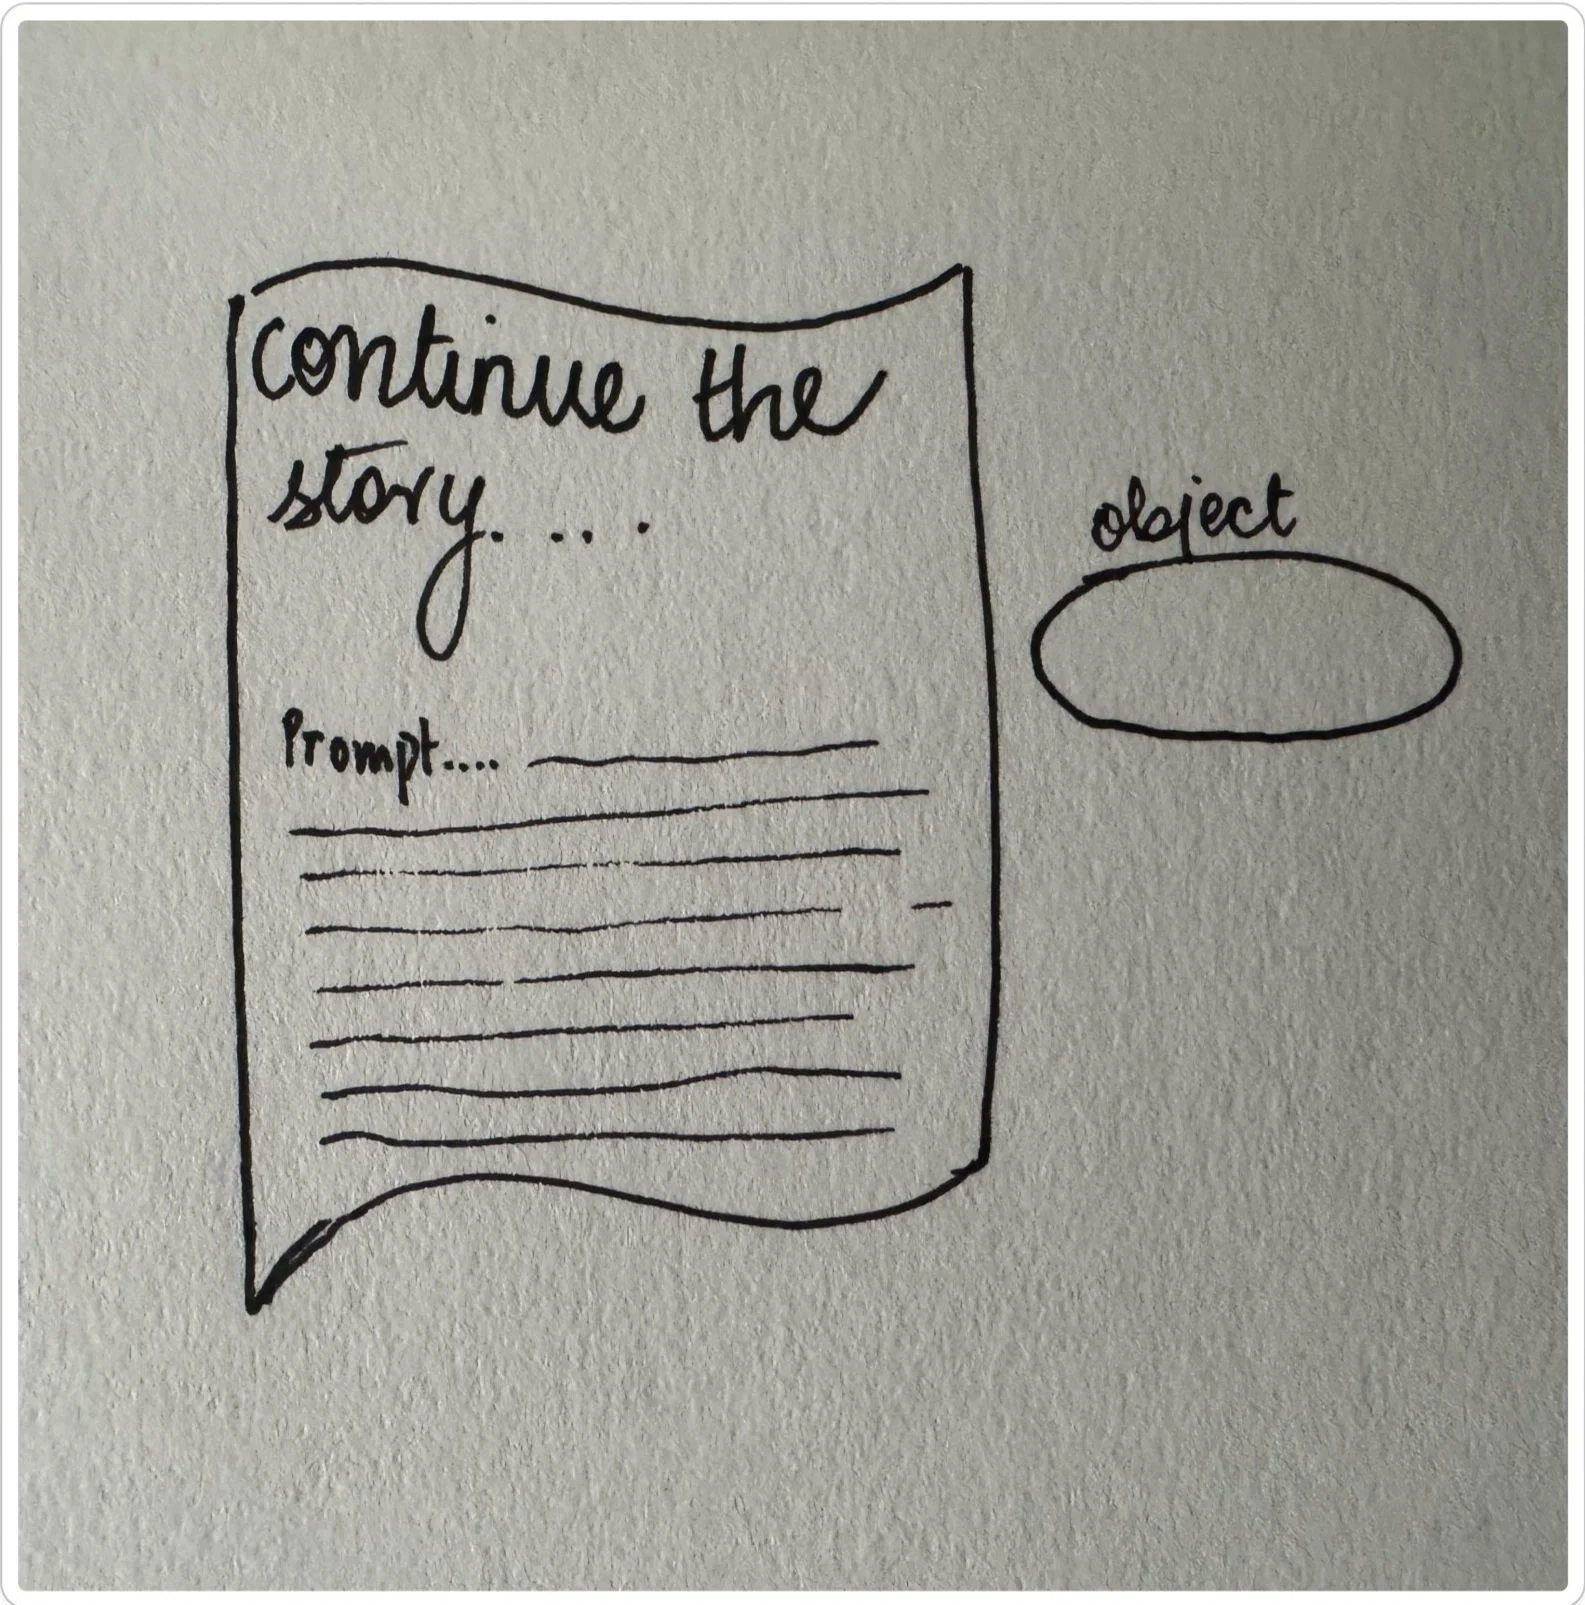 continue the
story.....
object
Prompt....